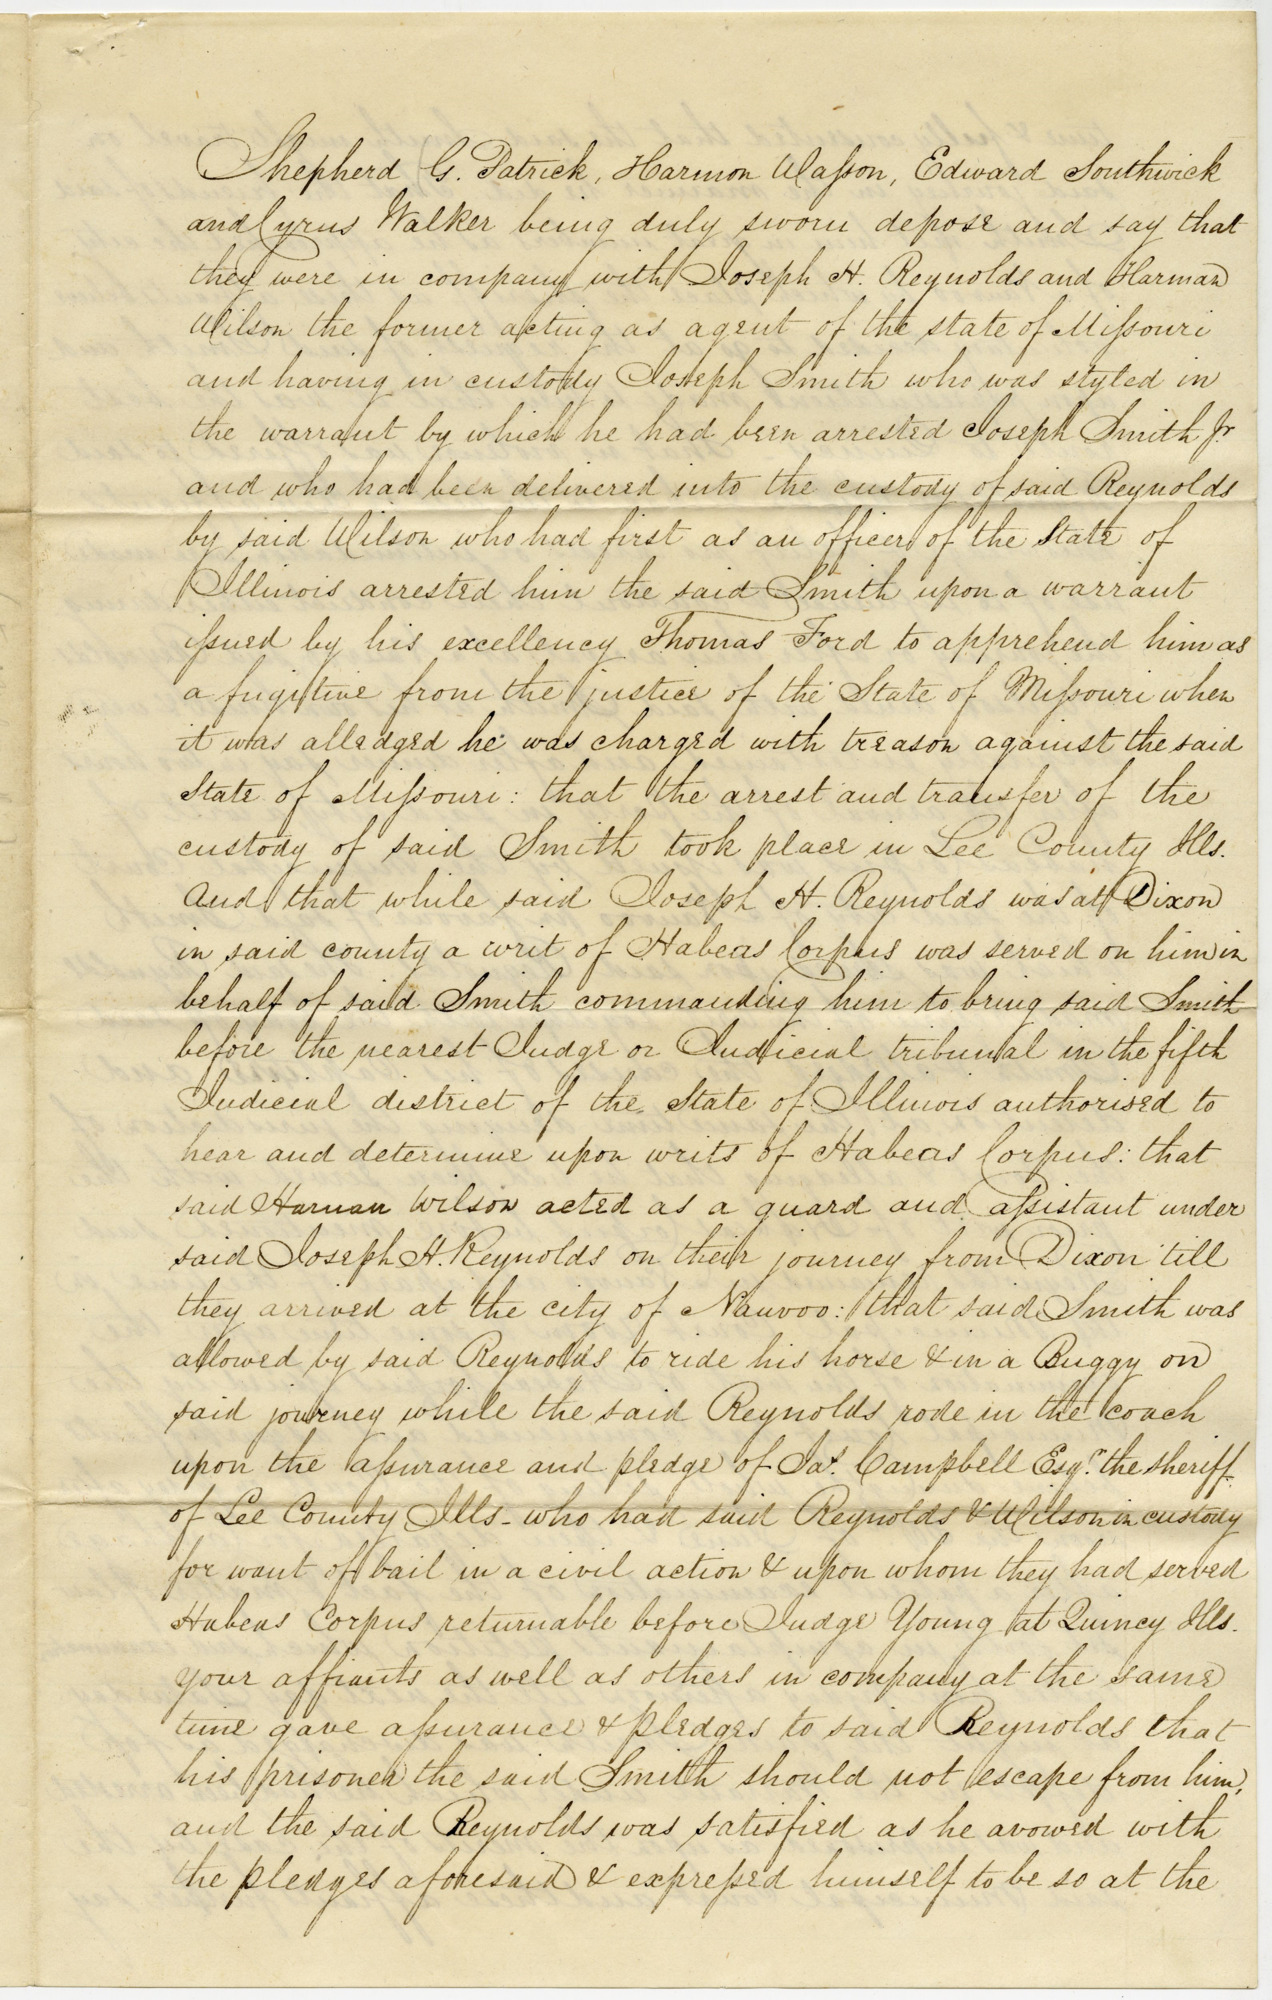 Shepherd G. Patrick, Harmon Wasson, Edward Southwick
and Cyrus Walker being duly sworn depose and say that
they were in company with Joseph H. Reynolds and Harman
Wilson the former acting as agent of the state of Missouri
and having in custody Joseph Smith who was styled in
the warrant by which he had been arrested Joseph Smith Jr
and who had been delivered into the custody of said Reynolds
by said Wilson who had first as an officer of the State of
Illinois arrested him the said Smith upon a warrant
issued by his excellency Thomas Ford to apprehend him as
a fugitive from the justice of the State of Missouri when
it was alledged he was charged with treason against the said
State of Missouri: that the arrest and transfer of the
custody of said Smith took place in Lee County Ills.
And that while said Joseph H. Reynolds was at Dixon
in said county a writ of Habeas Corpus was served on him in
behalf of said Smith commanding him to bring said Smith
before the nearest Judge or Judicial tribunal in the fifth
Judicial district of the State of Illinois authorised to
hear and determine upon writs of Habeas Corpus: that
said Harman Wilson acted as a guard and assistant under
said Joseph H. Reynolds on their journey from Dixon till
they arrived at the city of Nauvoo: that said Smith was
allowed by said Reynolds to ride his horse & in a Buggy on
said journey while the said Reynolds rode in the coach
upon the assurance and pledge of Jas. Campbell Esqr. the sheriff
of Lee County Ills - who had said Reynolds & Wilson in custody
for want of bail in a civil action & upon whom they had served
Habeas Corpus returnable before Judge Young at Quincy Ills.
your affiants as well as others in company at the same
time gave assurance & pledges to said Reynolds that
his prisoner the said Smith should not escape from him,
and the said Reynolds was satisfied as he avowed with
the pledges aforesaid & expressed himself to be so at the